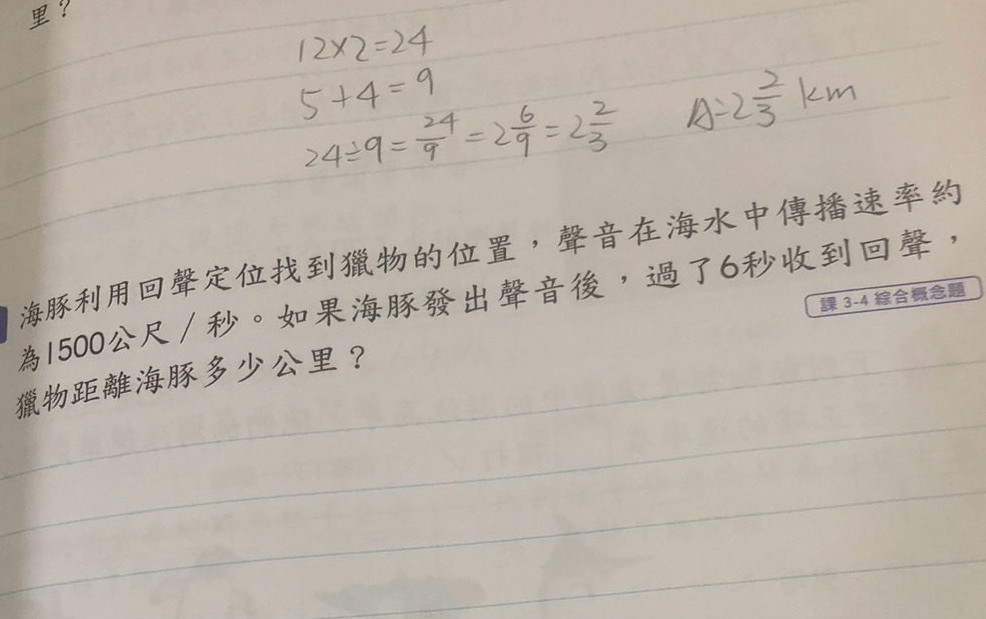 里？
12×2=24
5+4=9
24÷9=24/9=2 6/9=2 2/3 A:2 2/3 km
海豚利用回聲定位找到獵物的位置，聲音在海水中傳播速率約
為1500公尺／秒。如果海豚發出聲音後，過了6秒收到回聲，
獵物距離海豚多少公里？
課 3-4 綜合概念題